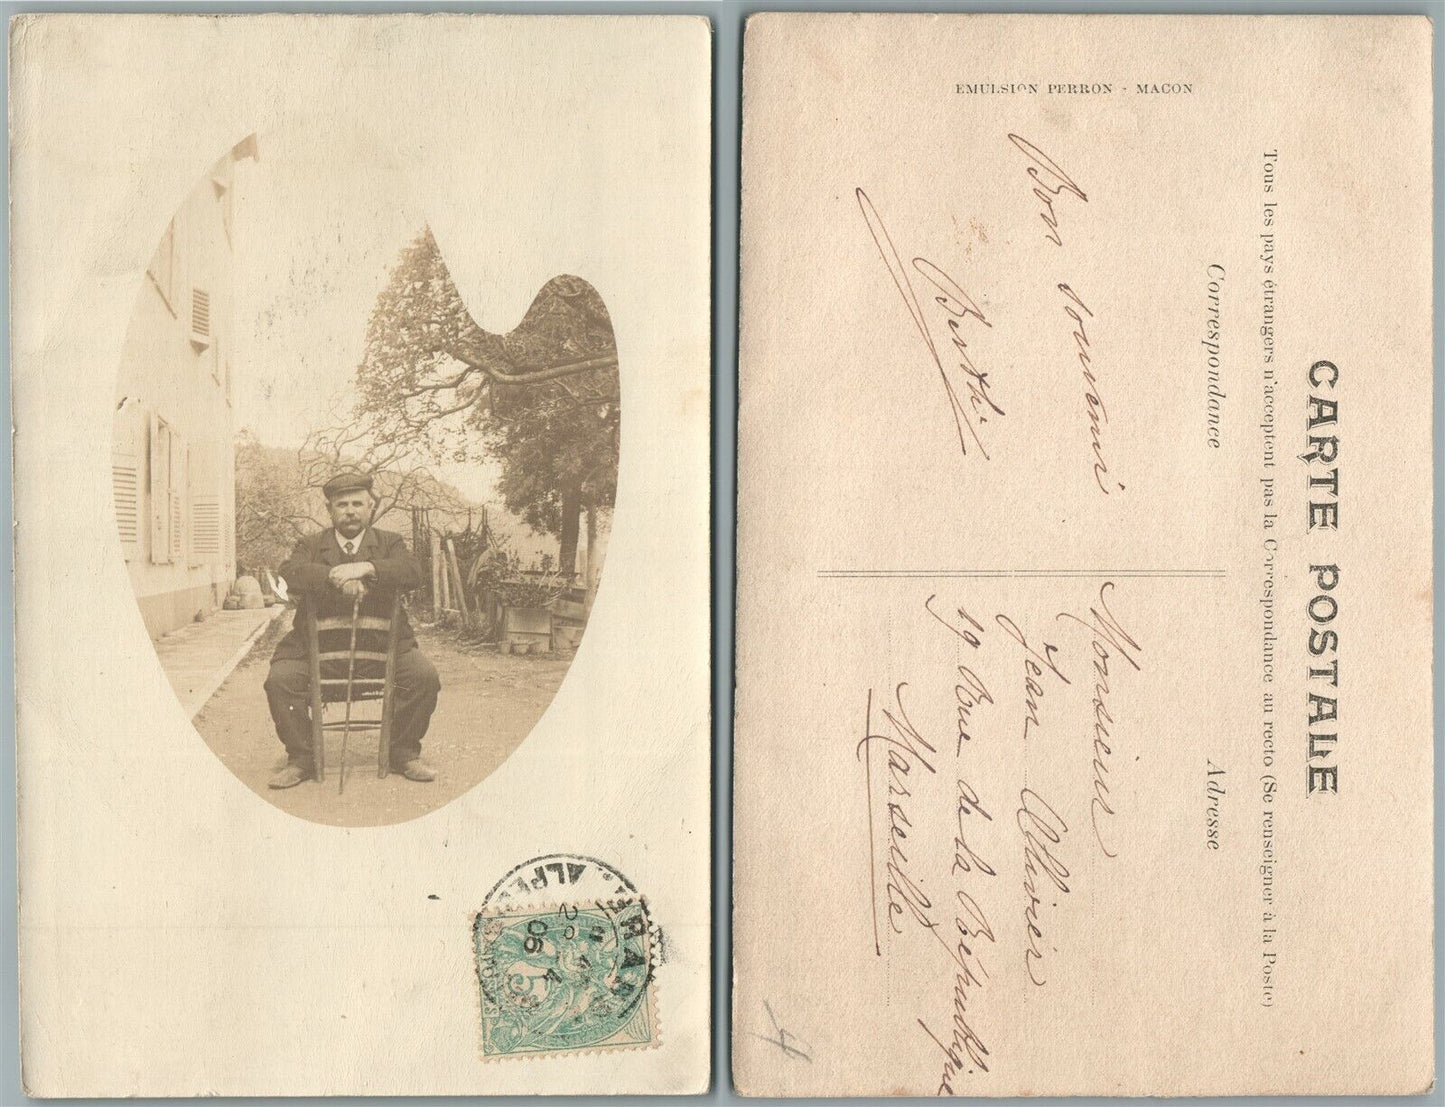 06
EMULSION PERRON - MACON
CARTE POSTALE
Tous les pays étrangers n'acceptent pas la Correspondance au recto (Se renseigner à la Poste)
Correspondance
Adresse
Bon souvenir
Berthe
Monsieur
Jean Ollivier
19 Rue de la République
Marseille
4